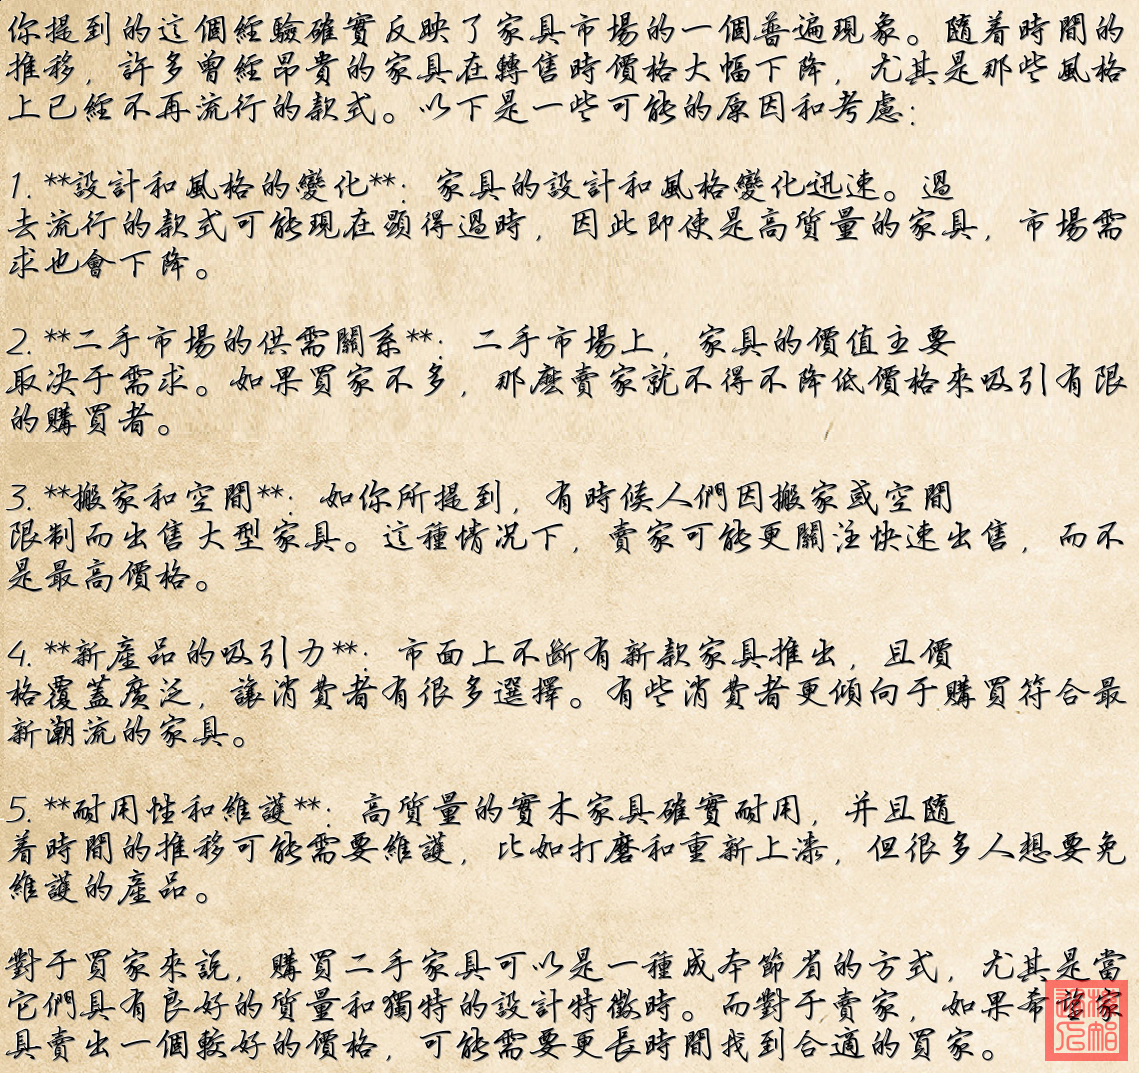 你提到的這個經驗確實反映了家具市場的一個普遍現象。隨着時間的
推移，許多曾經昂貴的家具在轉售時價格大幅下降，尤其是那些風格
上已經不再流行的款式。以下是一些可能的原因和考慮：
1. **設計和風格的變化**：家具的設計和風格變化迅速。過
去流行的款式可能現在顯得過時，因此即使是高質量的家具，市場需
求也會下降。
2. **二手市場的供需關系**：二手市場上，家具的價值主要
取决于需求。如果買家不多，那麽賣家就不得不降低價格來吸引有限
的購買者。
3. **搬家和空間**：如你所提到，有時候人們因搬家或空間
限制而出售大型家具。這種情况下，賣家可能更關注快速出售，而不
是最高價格。
4. **新產品的吸引力**：市面上不斷有新款家具推出，且價
格覆蓋廣泛，讓消費者有很多選擇。有些消費者更傾向于購買符合最
新潮流的家具。
5. **耐用性和維護**：高質量的實木家具確實耐用，并且隨
着時間的推移可能需要維護，比如打磨和重新上漆，但很多人想要免
維護的產品。
對于買家來説，購買二手家具可以是一種成本節省的方式，尤其是當
它們具有良好的質量和獨特的設計特徵時。而對于賣家，如果希望家
具賣出一個較好的價格，可能需要更長時間找到合適的買家。